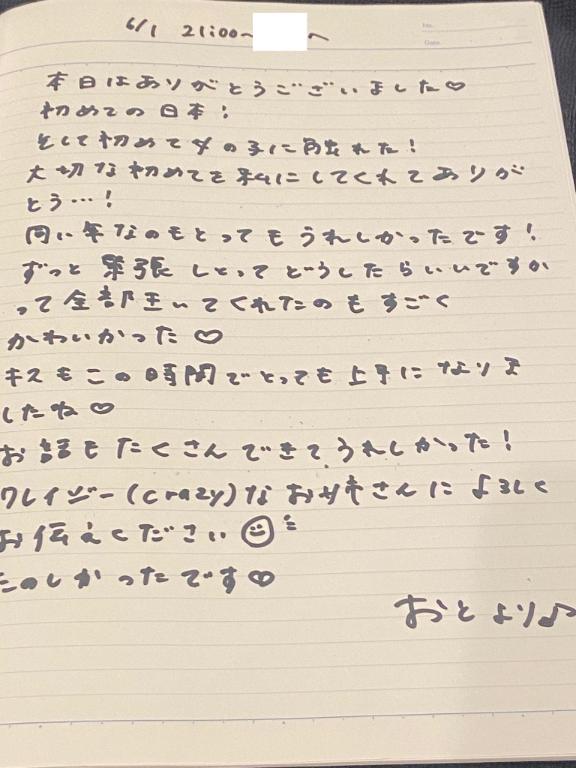 6/1 21:00〜 へ
No.
Date
本日はありがとうございました♡
初めての日本!
そして初めて女の子に触れた!
大切な初めてを私にしてくれてありが
とう…!
同い年なのもとってもうれしかったです!
ずっと緊張しとってどうしたらいいですか
って全部聞いてくれたのもすごく
かわいかった♡
キスもこの時間でとっても上手になりま
したね♡
お話もたくさんできてうれしかった!
クレイジー(crazy)なお姉さんによろしく
お伝えください
たのしかったです♡
おとより♪